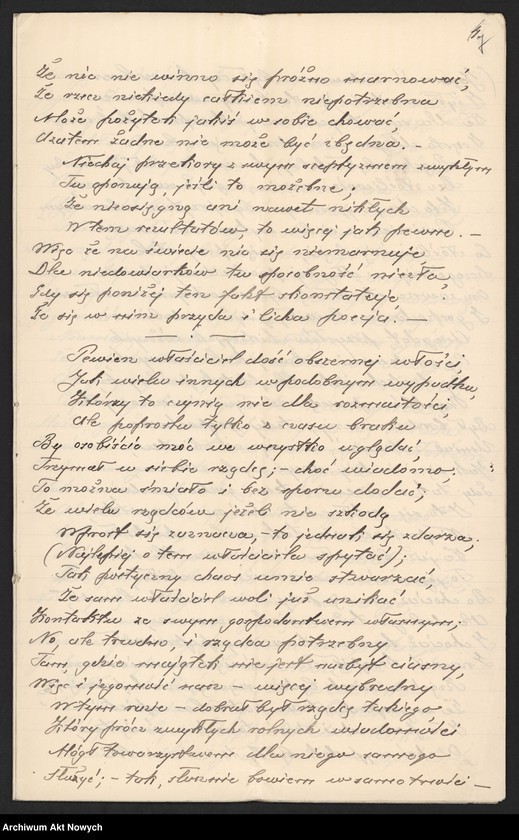 Że nic nie winno się próżno marnować,
Że rzecz niekiedy całkiem niepotrzebna
Może pożytek jakiś w sobie chować,
Zatem żadna nie może być zbędna. –
Niechaj przekory z swym sceptyzmem zwykłym
Tu oponują, jeśli to możebne;
Że nieosięgną ani nawet nikłych
W tem rezultatów, to więcej jak pewne. –
Więc że na świecie nic się niemarnuje
Dla niedowiarków tu sposobność niezła,
Gdy się poniżej ten fakt skonstatuje
Że się w nim przyda i licha poezja. –
Pewien właściciel dość obszernej włości,
Jak wielu innych w podobnym wypadku,
Którzy to czynią nie dla rozmaitości
Ale poprostu tylko z czasu braku
By osobiście móc we wszystko wglądać,
Trzymał u siebie rządcę; – choć wiadomo,
To można śmiało i bez sporu dodać;
Że wielu rządców jeżeli nie szkodą
Wprost się zaznacza, – to jednak się zdarza;
(Najlepiej o tem właściciela spytać);
Tak poetyczny chaos umie stwarzać,
Że sam właściciel woli już unikać
Kontaktu ze swym gospodarstwem własnym;
No, ale trudno, i rządca potrzebny
Tam, gdzie majątek nie jest nazbyt ciasny,
Więc i jegomość nasz – więcej wybredny
W tym razie – dobrał był rządcę takiego
Który prócz zwykłych rolnych wiadomości
Mógł towarzystwem dla niego samego
Służyć; – tak, słusznie bowiem w samotności –
Archiwum Akt Nowych